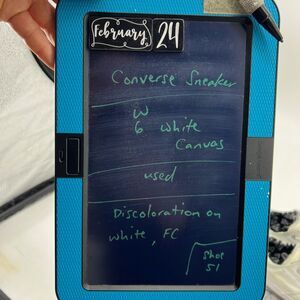 February 24
Converse Sneaker
W
6 white
Canvas
used
Discoloration on
white, FC
Shoe
51